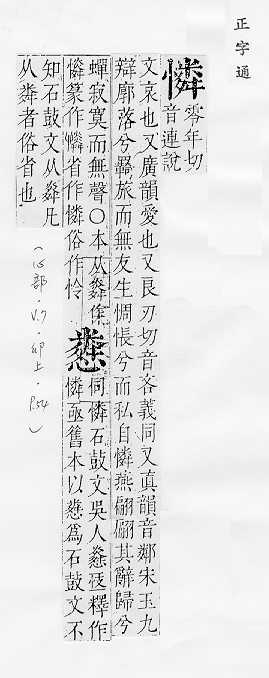 正字通
憐 零年切音連說
文哀也又廣韻愛也又良刃切音吝義同又真韻音鄰宋玉九
辯廓落兮羇旅而無友生惆悵兮而私自憐燕翩翩其辭歸兮
蟬寂寞而無聲○本从粦作
憐篆作憐省作憐俗作怜 𢠢 同憐石鼓文吳人𢠢亟釋作
憐亟舊本以𢠢爲石鼓文不
知石鼓文从粦凡
从粦者俗省也
(心部.V.7.卯上.P.54)